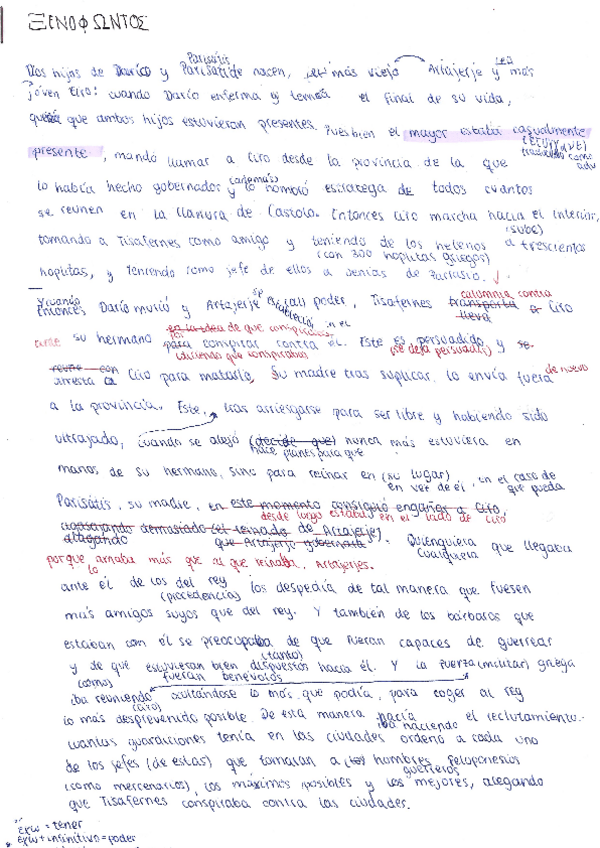 ΞΕΝΟΦΩΝΤΟΣ
Parisátis
Dos hijas de Darío y Parisátide nacen, el más viejo Artajerje y más
joven Ciro: cuando Darío enferma y temía el final de su vida,
quería que ambos hijos estuvieran presentes. Pues bien el mayor estaba casualmente
presente, mandó llamar a Ciro desde la provincia de la que
(ETUΓXAVE)
lo había hecho gobernador y (además) lo nombró estratega de todos cuantos
se reunen en la llanura de Castolo. Entonces Ciro marcha hacia el interior,
(sube)
tomando a Tisafernes como amigo y teniendo de los helenos a trescientos
(con 300 hoplitas griegos)
hoplitas, y teniendo como jefe de ellos a Jenias de Parrasio.
Cuando
Entonces Darío murió y Artajerje se estableció en el poder, Tisafernes calumnia contra
transporta lleva a Ciro
ante su hermano en la idea de que
para conspirar contra él. Este es persuadido y se
(diciendo que conspiraba) (se deja persuadir)
reune con
arresta a Ciro para matarlo. Su madre tras suplicar lo envía fuera de nuevo
a la provincia. Este, tras arriesgarse para ser libre y habiendo sido
ultrajado, cuando se alejó (decide que) nunca más estuviera en
hace planes para que
manos de su hermano, sino para reinar en (su lugar)
en vez de él, en el caso de
que pueda
Parisátis, su madre, en este momento consiguió engañar a Ciro,
desde luego estaba en el lado de Ciro
demasiado (el reinado de Artajerje)
que Artajerje gobernara. Quienquiera que llegara
cualquiera
porque amaba más que al que reinaba, Artajerjes.
lo
ante él de los del rey los despedía de tal manera que fuesen
(procedencia)
más amigos suyos que del rey. Y también de los bárbaros que
estaban con él se preocupaba de que fueran capaces de guerrear
(tanto)
y de que estuvieran bien dispuestos hacia él. Y la fuerza (militar) griega
(como) fueran benévolos
iba reuniendo ocultándose lo más que podía, para coger al rey
(Ciro)
lo más desprevenido posible. De esta manera hacía el reclutamiento.
iba haciendo
cuantas guarniciones tenía en las ciudades ordenó a cada uno
de los jefes (de estas) que tomaran a (los) hombres Peloponesios
guerreros
(como mercenarios), los máximos posibles y los mejores, alegando
que Tisafernes conspiraba contra las ciudades.
ἔχω = tener
* ἔχω + infinitivo = poder